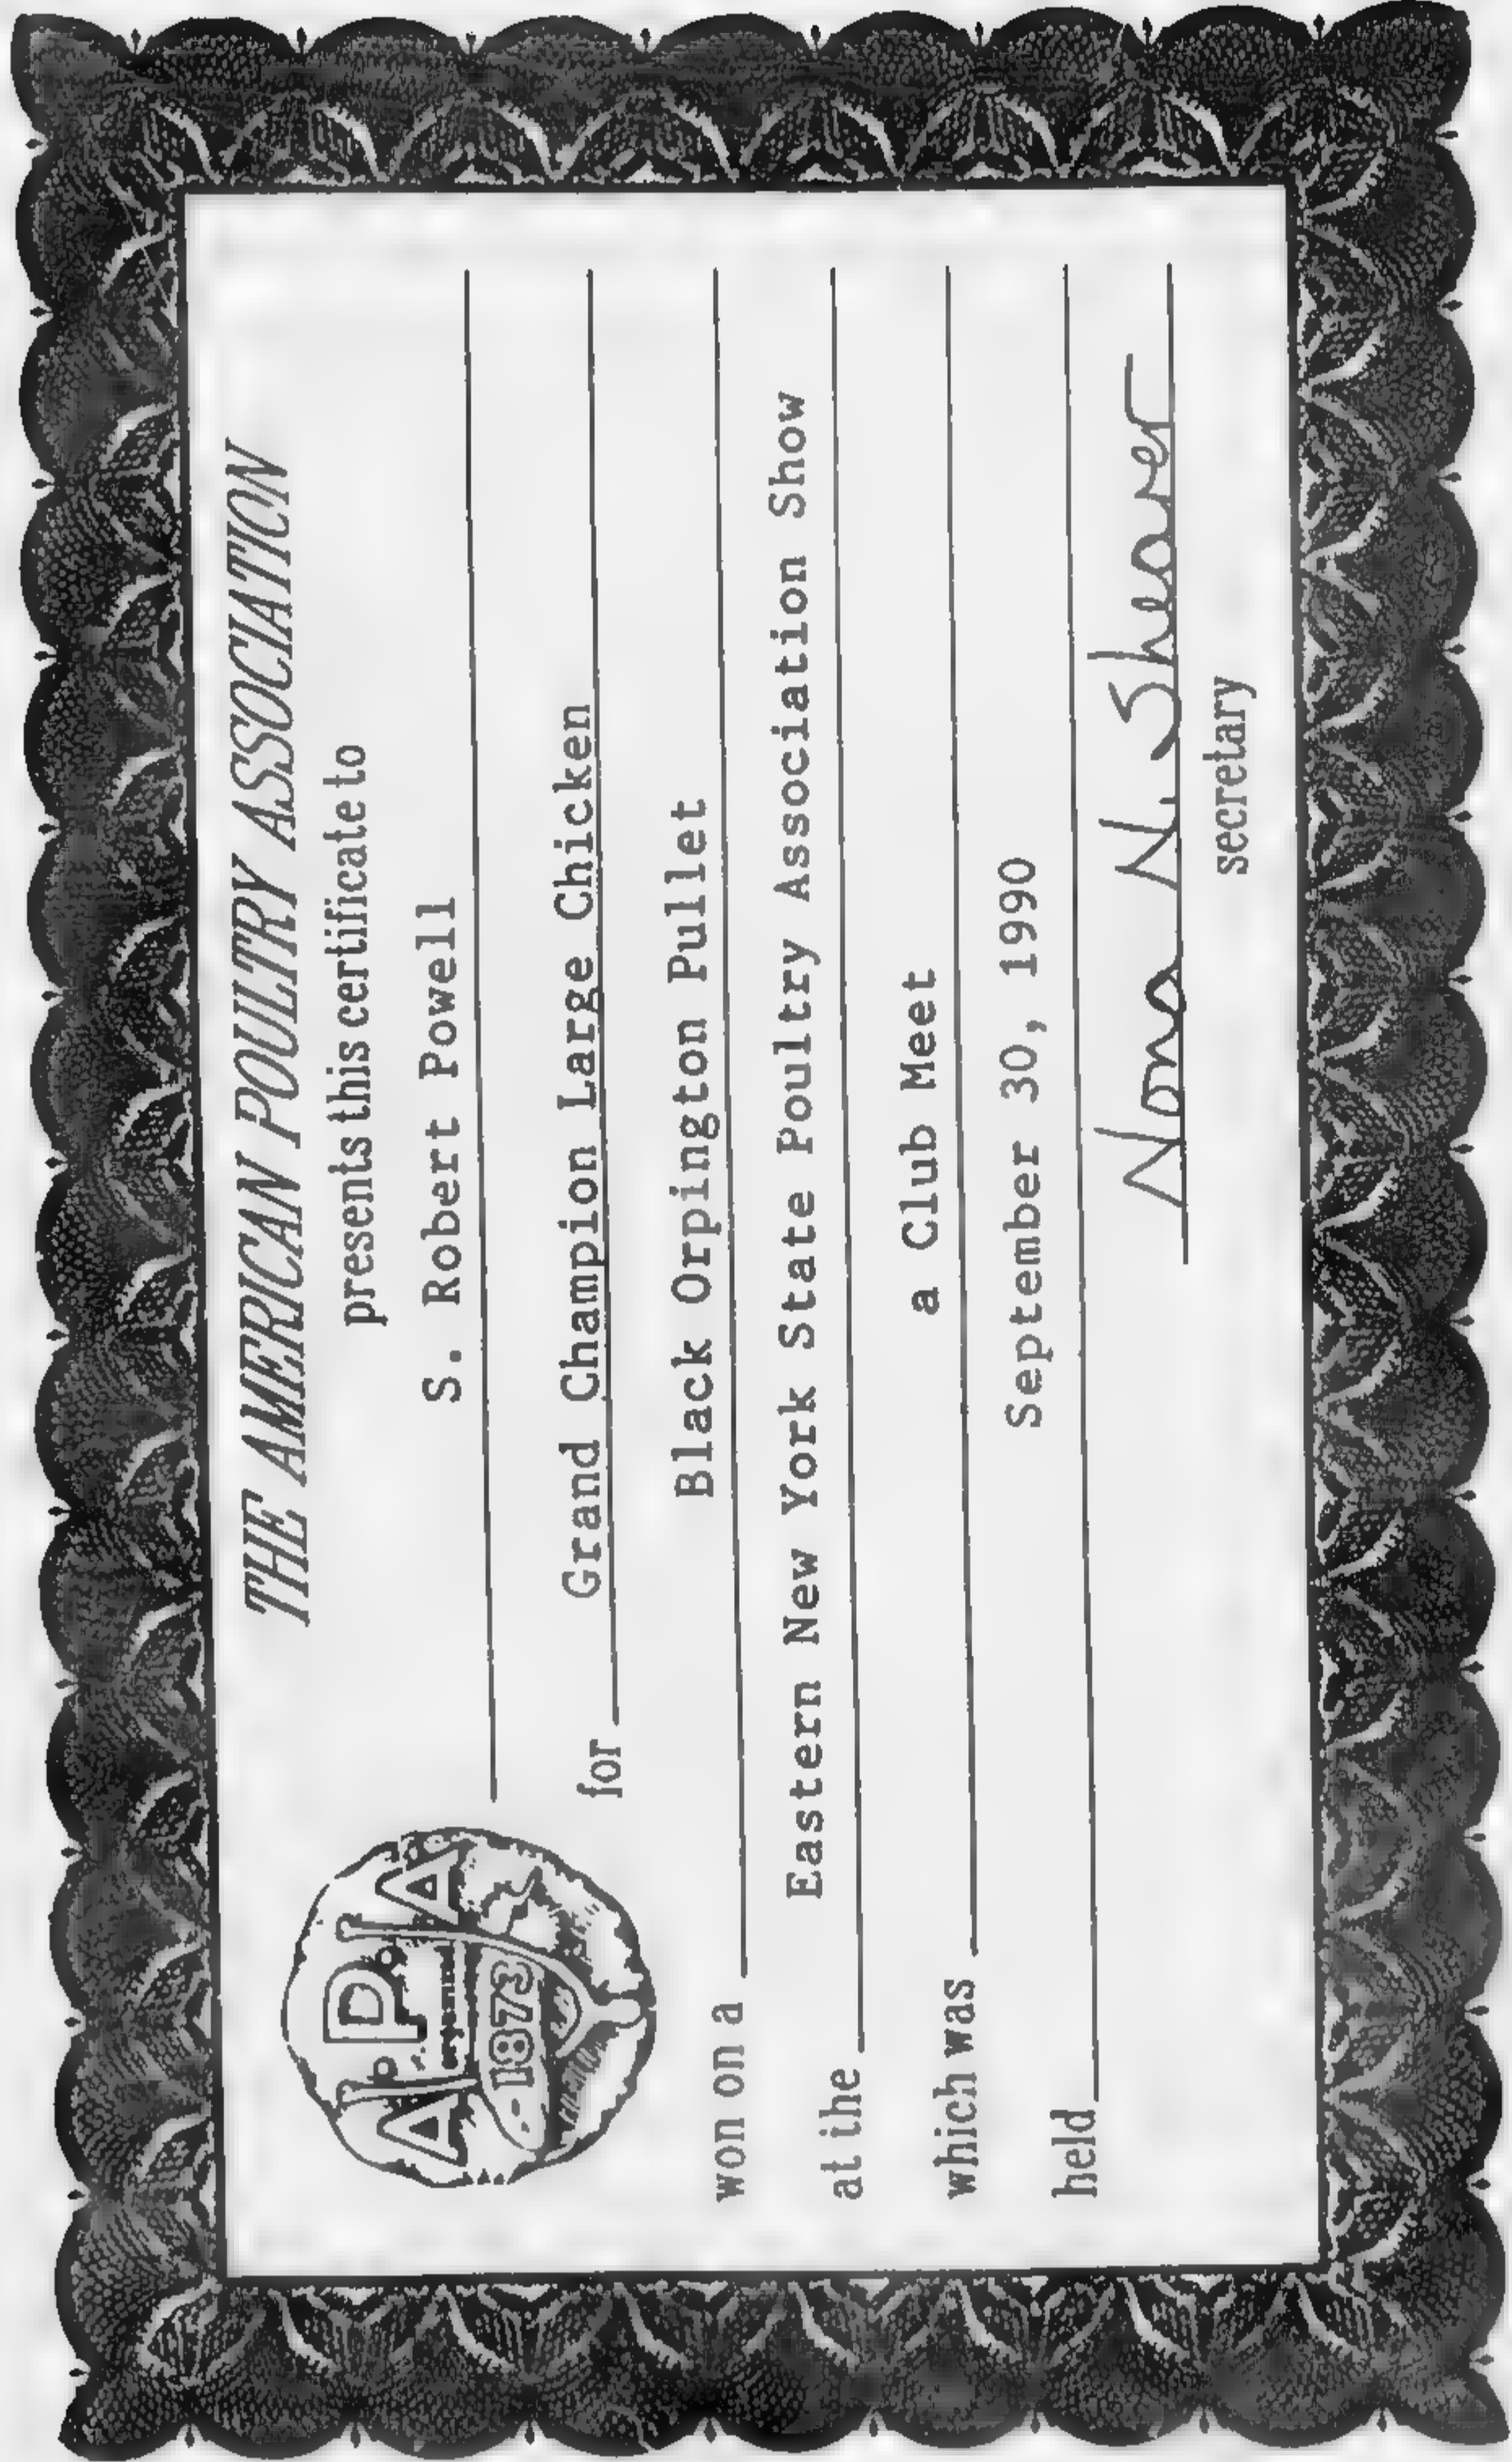 THE AMERICAN POULTRY ASSOCIATION
presents this certificate to
S. Robert Powell
for Grand Champion Large Chicken
won on a Black Orpington Pullet
at the Eastern New York State Poultry Association Show
which was a Club Meet
held September 30, 1990
Nona N. Shearer
secretary
A.P.A.
1873